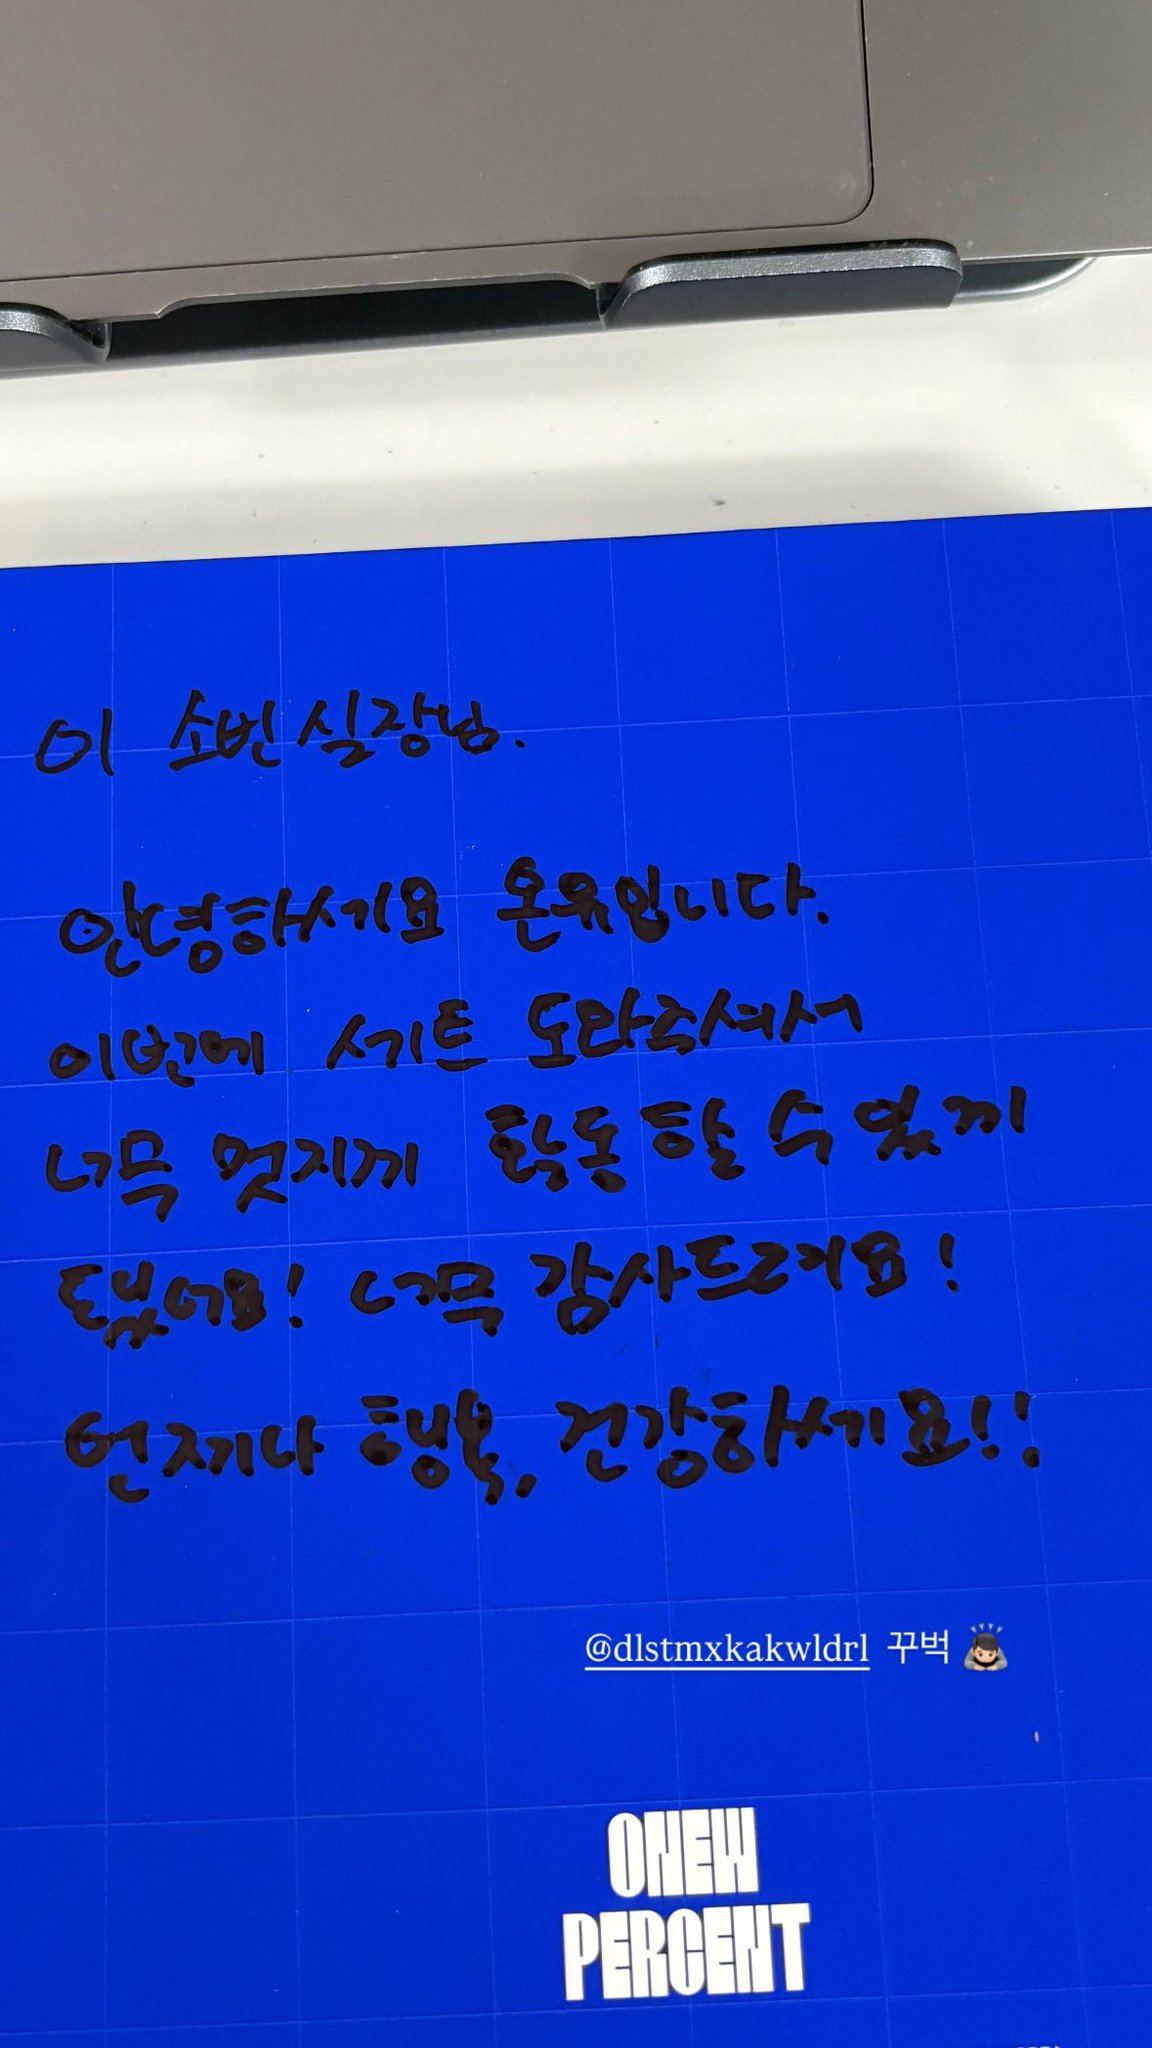 이 소빈실장님.
안녕하세요 온유입니다.
이번에 세트 도와주셔서
너무 멋지게 활동할 수 있게
됐어요! 너무 감사드려요!
언제나 행복, 건강하세요!!
@dlstmxkakwldrl 꾸벅 🙇🏻‍♂️
ONEW
PERCENT